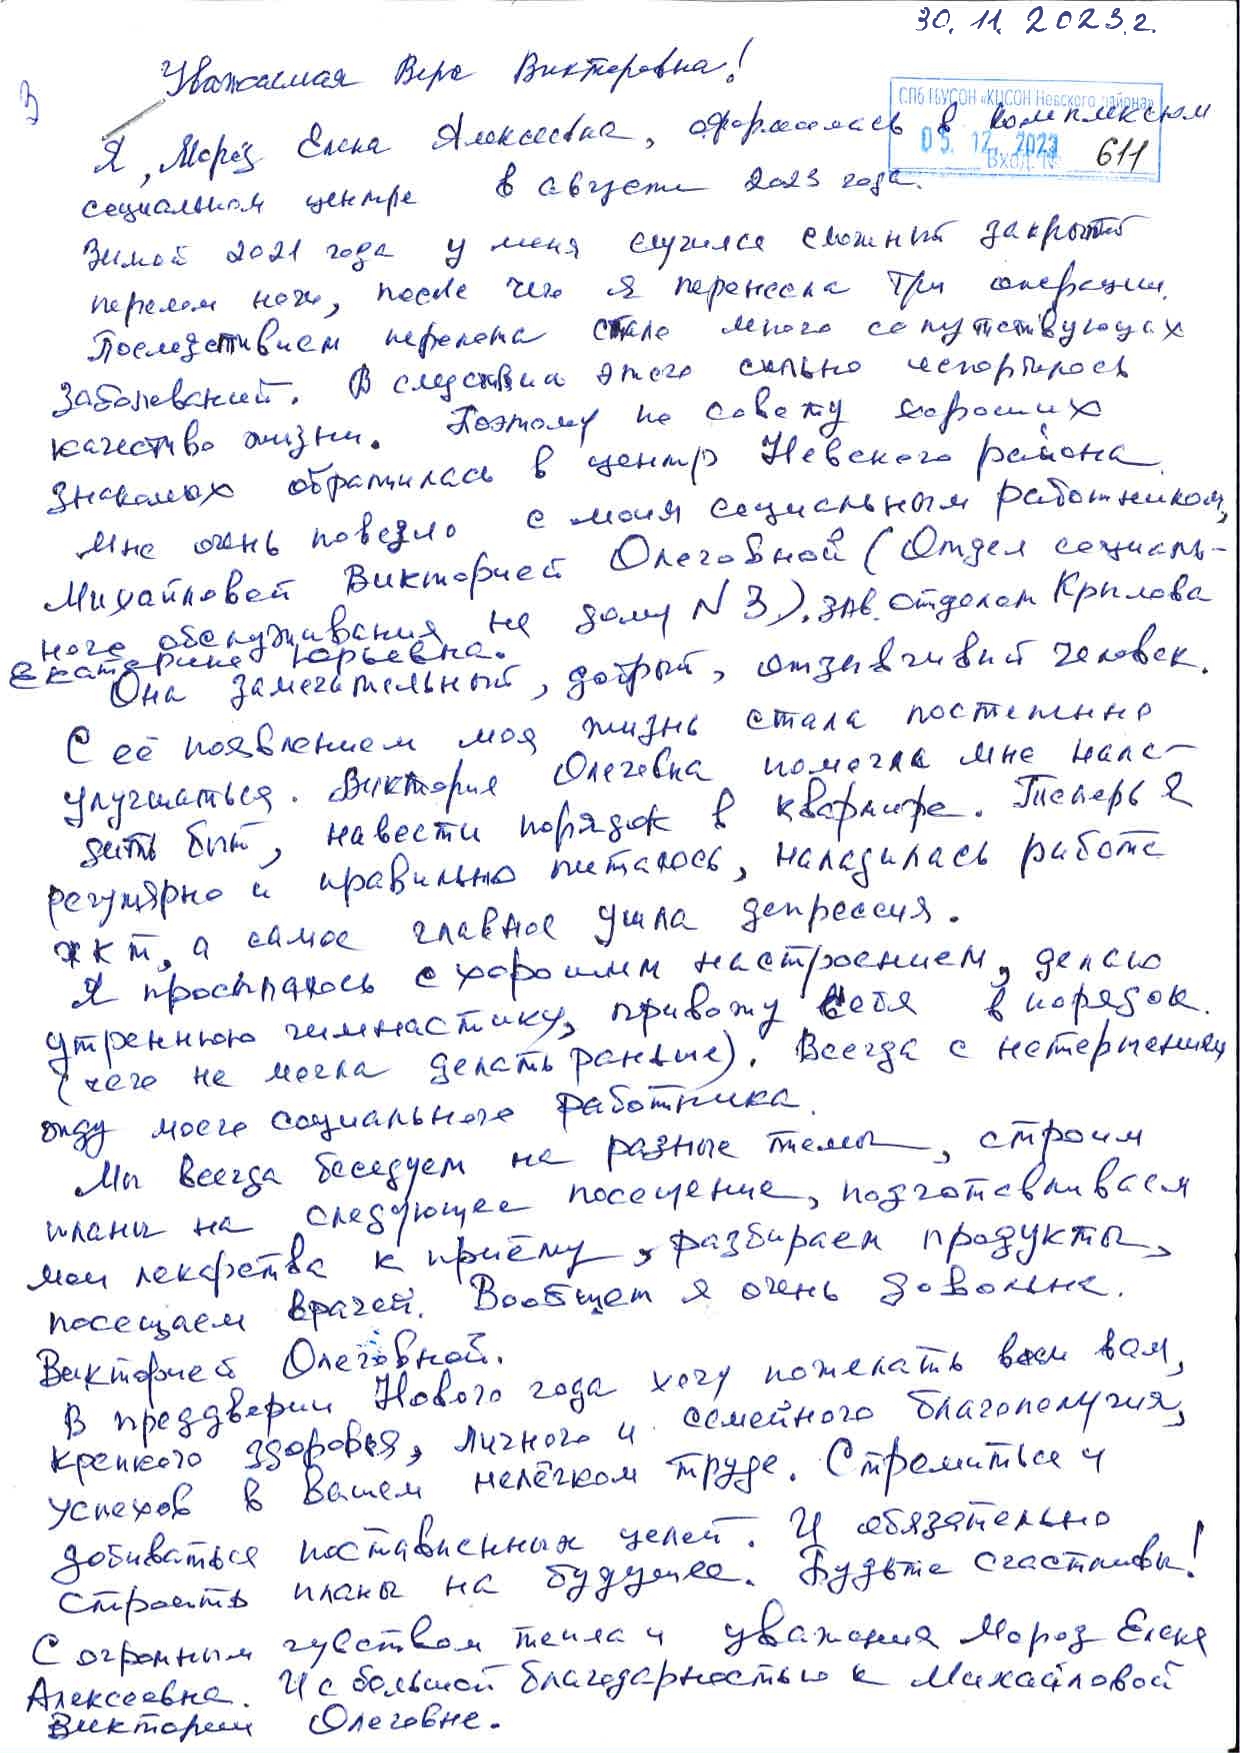 30.11.2023.г.
Уважаемая Вера Викторовна!
3
СПб ГБУСОН «КЦСОН Невского района»
05. 12. 2023
Вход. № 611
Я, Мороз Елена Алексеевна, оформилась в комплексном
социальном центре в августе 2023 года.
Зимой 2021 года у меня случился сложный закрытый
перелом ноги, после чего я перенесла три операции.
Последствием перелома стало много сопутствующих
заболеваний. В следствии этого сильно испортилось
качество жизни. Поэтому по совету хороших
знакомых обратилась в центр Невского района.
Мне очень повезло с моим социальным работником,
Михайловой Викторией Олеговной (Отдел социаль-
ного обслуживания на дому N 3). зав. отделом Крылова
Екатерина Юрьевна.
Она замечательный, добрый, отзывчивый человек.
С её появлением моя жизнь стала постепенно
улучшаться. Виктория Олеговна помогла мне нала-
дить быт, навести порядок в квартире. Теперь я
регулярно и правильно питаюсь, наладилась работа
жкт, а самое главное ушла депрессия.
Я просыпаюсь с хорошим настроением, делаю
утреннюю гимнастику, привожу себя в порядок.
(чего не могла делать раньше). Всегда с нетерпением
жду моего социального работника.
Мы всегда беседуем на разные темы, строим
планы на следующее посещение, подготавливаем
мои лекарства к приёму, разбираем продукты,
посещаем врачей. Вообщем я очень довольна.
Викторией Олеговной.
В преддверии Нового года хочу пожелать всем вам,
крепкого здоровья, личного и семейного благополучия,
успехов в Вашем нелёгком труде. Стремиться и
добиваться поставленных целей. И обязательно
строить планы на будущее. Будьте счастливы!
С огромным чувством тепла и уважения Мороз Елена
Алексеевна. И с большой благодарностью к Михайловой
Виктории Олеговне.